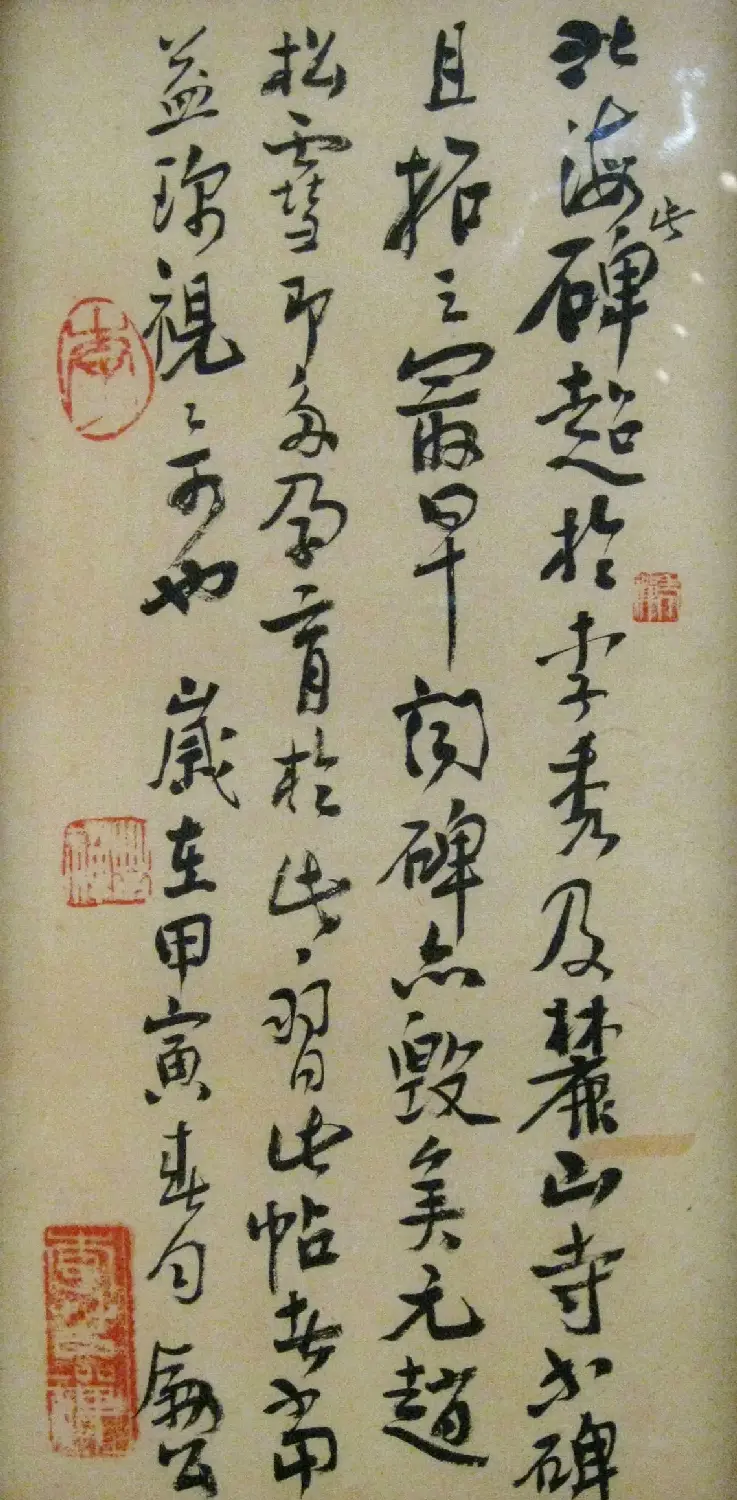 北海此碑超於李秀及麓山寺碑
且拓之最早聞碑亦毀矣元趙
松雪即多孕育於此習此帖者當
益珍視之可也 歲在甲寅春月公